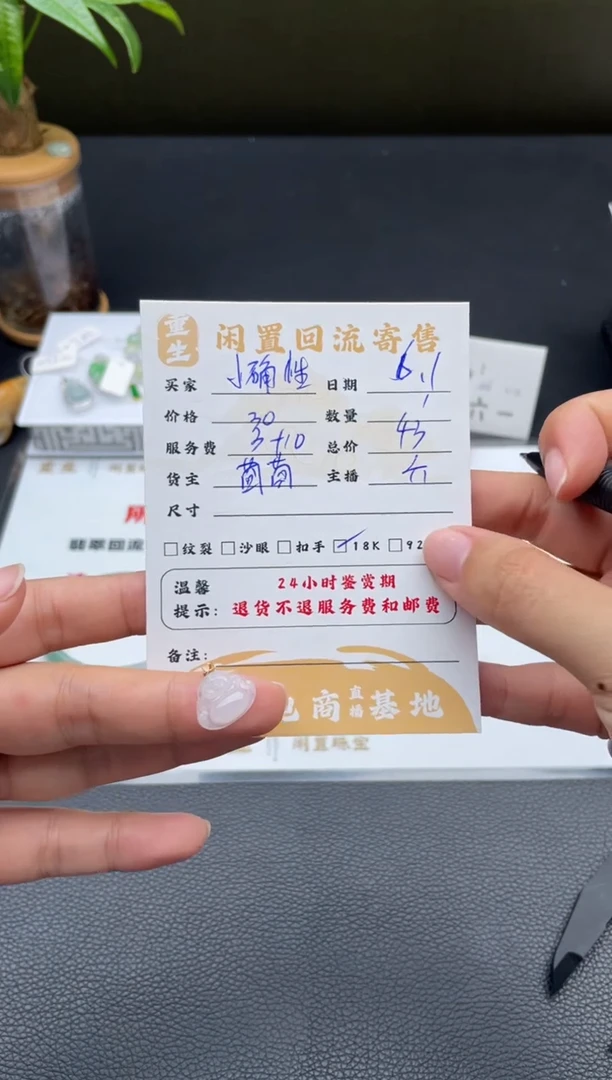 重生 闲置回流寄售
买家 小确性 日期 6.1
价格 30 数量 1
服务费 3+10 总价 43
货主 茵茵 主播 六
尺寸
纹裂 沙眼 扣手 18K 92
温馨提示: 24小时鉴赏期
退货不退服务费和邮费
备注:
电商直播基地
翡翠回流
闲置珠宝
六一